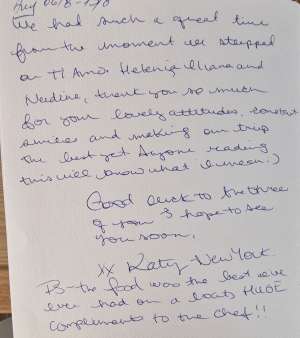 Aug 06/8-
We had such a great time
from the moment we stepped
on Ti Amo. Helenia, Iliana and
Nadine, thank you so much
for your lovely attitudes, constant
smiles and making our trip
the best yet. Anyone reading
this will know what I mean :)
Good luck to the three
of you & hope to see
you soon,
xx Katy New York
PS - the food was the best we
ever had on a boat HUGE
compliments to the chef!!